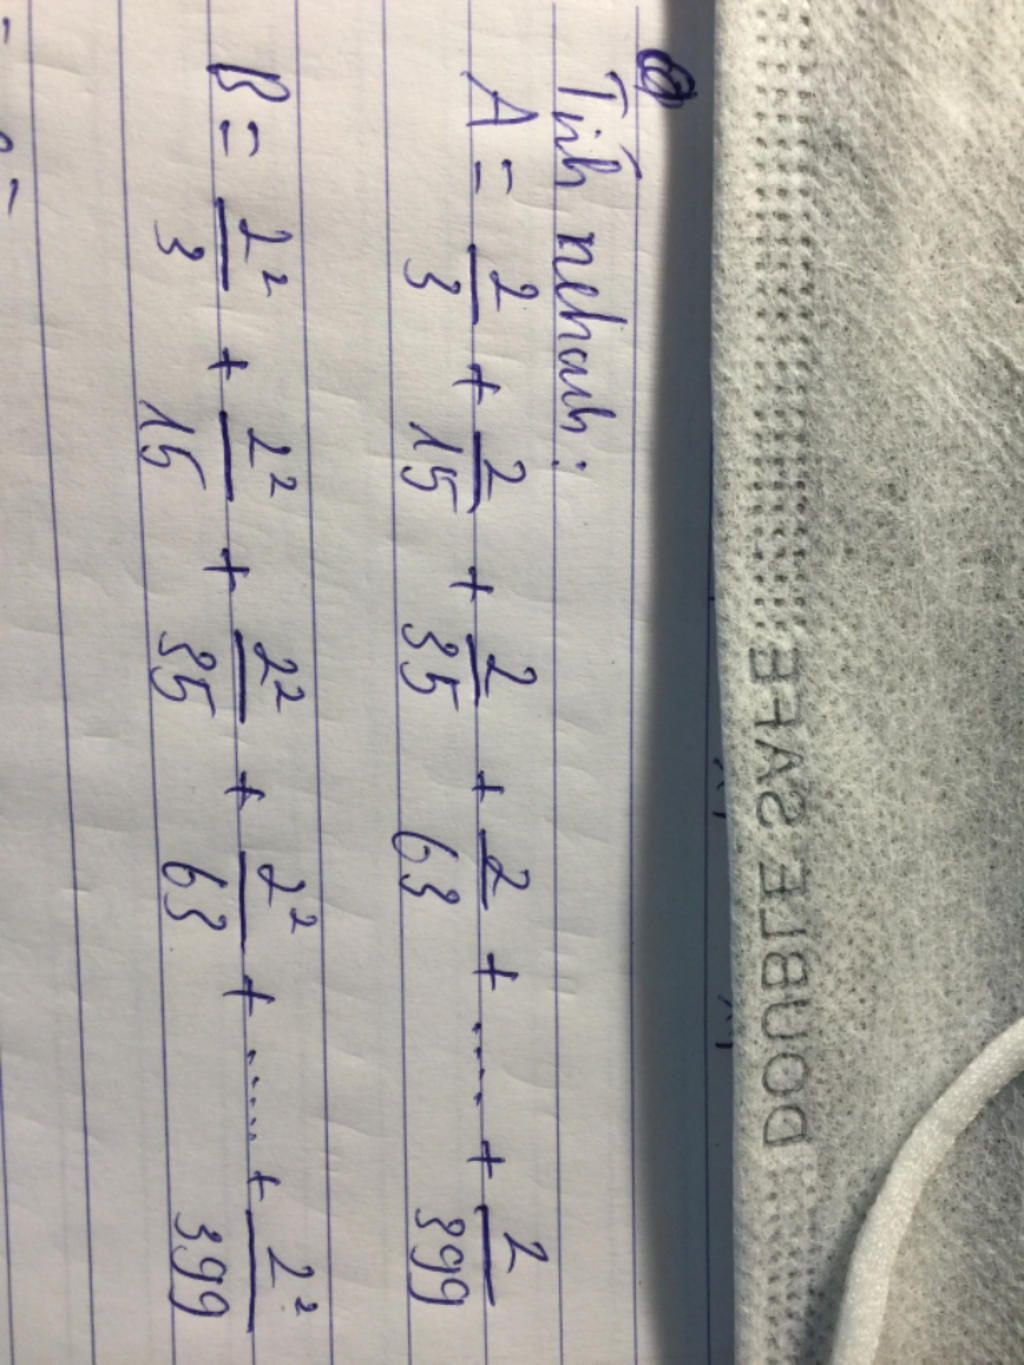 Tính nhanh:
A = 2/3 + 2/15 + 2/35 + 2/63 + ..... + 2/399
B = 2²/3 + 2²/15 + 2²/35 + 2²/63 + ..... + 2²/399
DOUBLE SAFE